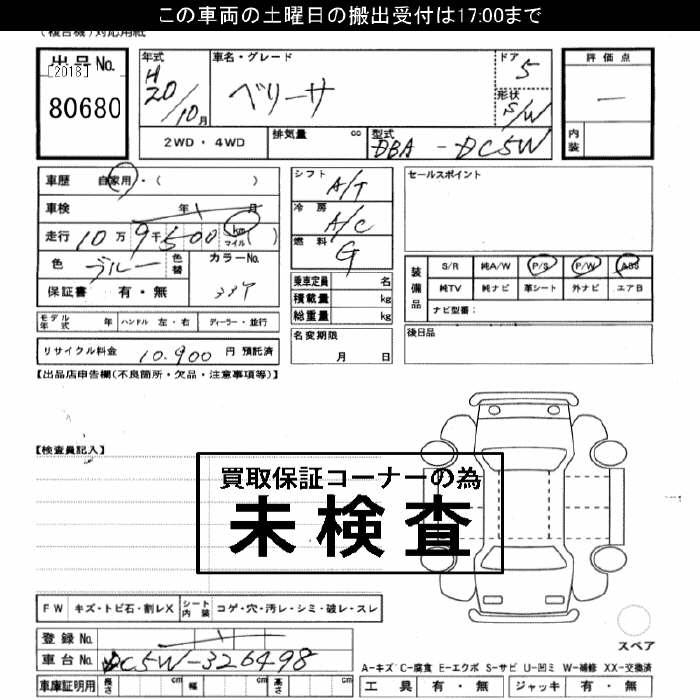 この車両の土曜日の搬出受付は17:00まで
(複合機)対応用紙
出品No.
[2018]
80680
年式
H
20/10月
車名・グレード
ベリーサ
ドア
5
形状
S/W
評価点
—
内装
2WD・4WD
排気量 cc
型式
DBA - DC5W
車歴 自家用・( )
車検 年 月
走行 10万9千500 km マイル ( )
色 ブルー 色替 カラーNo.
保証書 有・無
シフト A/T
冷房 A/C
燃料 G
乗車定員 名
積載量 kg
総重量 kg
名変期限
月 日
セールスポイント
装備品
S/R 純A/W P/S P/W ABS
純TV 純ナビ 革シート 外ナビ エアB
ナビ型番:
後日品
モデル年式 年 ハンドル 左・右 ディーラー・並行
リサイクル料金 10,900 円 預託済
【出品店申告欄(不良箇所・欠品・注意事項等)】
【検査員記入】
買取保証コーナーの為
未検査
FW キズ・トビ石・割レX シート内装 コゲ・穴・汚レ・シミ・破レ・スレ
登録No.
車台No. DC5W-326498
車庫証明用 長さ cm 幅 cm 高さ cm
スペア
A-キズ C-腐食 E-エクボ S-サビ U-凹ミ W-補修 XX-交換済
工具 有・無 ジャッキ 有・無